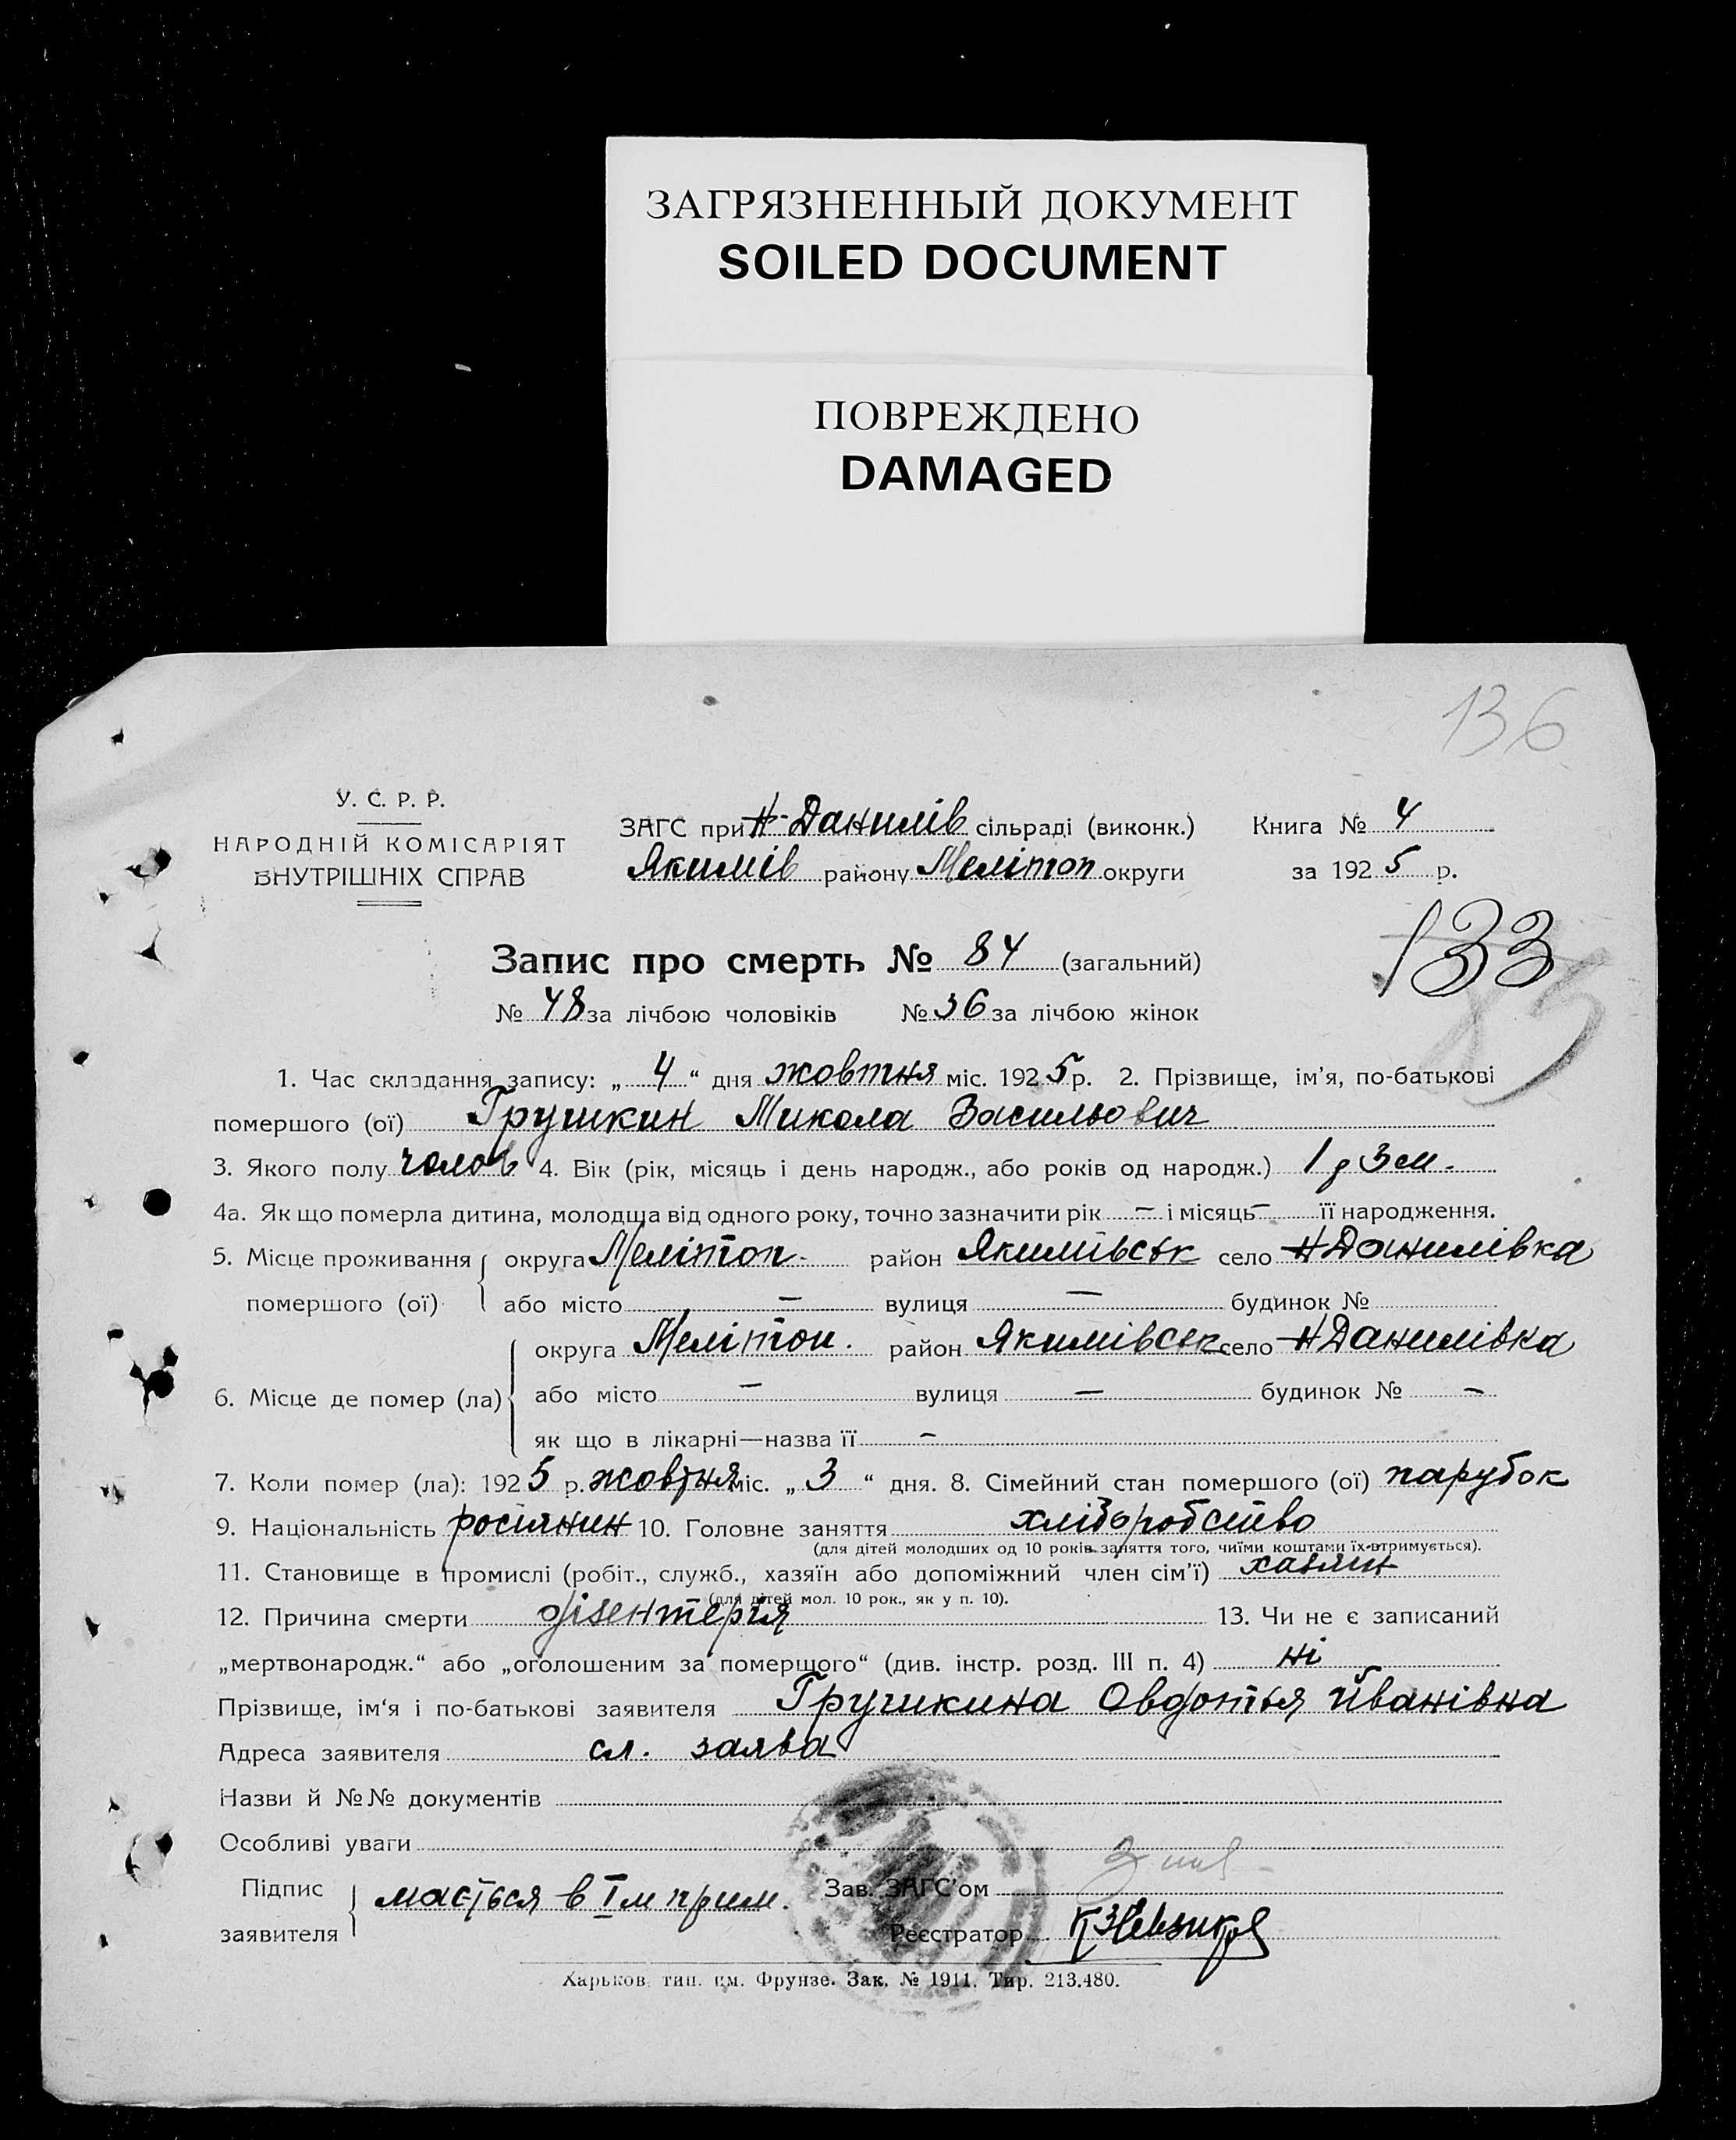 ЗАГРЯЗНЕННЫЙ ДОКУМЕНТ
SOILED DOCUMENT
ПОВРЕЖДЕНО
DAMAGED
136
У. С. Р. Р.
НАРОДНІЙ КОМІСАРІЯТ
ВНУТРІШНІХ СПРАВ
ЗАГС при Н-Данилів сільраді (виконк.) Книга № 4
Якимів району Мелітоп округи за 1925 р.
133
Запис про смерть № 84 (загальний)
№ 48 за лічбою чоловіків № 36 за лічбою жінок
1. Час складання запису: „ 4 “ дня жовтня міс. 1925 р. 2. Прізвище, ім’я, по-батькові
помершого (ої) Грушкин Микола Васильович
3. Якого полу чолов 4. Вік (рік, місяць і день народж., або років од народж.) 1 р 3 м.
4а. Як що померла дитина, молодша від одного року, точно зазначити рік — і місяць — її народження.
5. Місце проживання округа Мелітоп. район Якимівськ село Н Данилівка
помершого (ої) або місто — вулиця — будинок №
округа Мелітоп. район Якимівськ село Н Данилівка
6. Місце де помер (ла) або місто — вулиця — будинок № —
як що в лікарні—назва її —
7. Коли помер (ла): 1925 р. жовтня міс. „ 3 “ дня. 8. Сімейний стан помершого (ої) парубок
9. Національність росіянин 10. Головне заняття хліборобство
(для дітей молодших од 10 років заняття того, чиїми коштами їх втримується).
11. Становище в промислі (робіт., служб., хазяїн або допоміжний член сім’ї) хазяин
(для дітей мол. 10 рок., як у п. 10).
12. Причина смерти дізентерія 13. Чи не є записаний
„мертвонародж.“ або „оголошеним за помершого“ (див. інстр. розд. III п. 4) ні
Прізвище, ім‘я і по-батькові заявителя Грушкина Овдотья Йванівна
Адреса заявителя сл. заява
Назви й №№ документів
Особливі уваги
Підпис мається в І м прим. Зав. ЗАГС’ом
заявителя Реєстратор
Харьков, тип. им. Фрунзе. Зак. № 1911. Тир. 213.480.